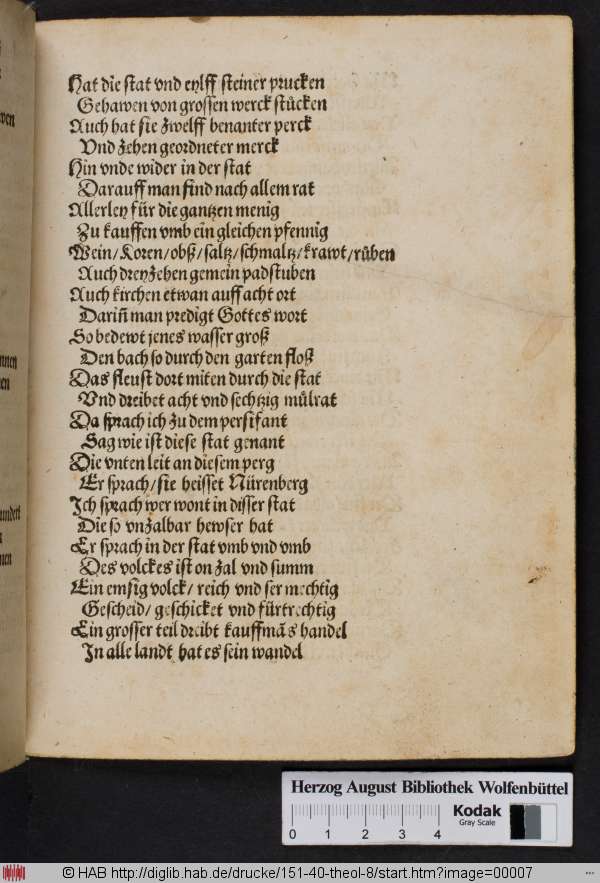 Hat die stat vnd eylff steiner prucken
Gehawen von grossen werck stůcken
Auch hat sie zwelff benanter perck
Vnd zehen geordneter merck
Hin vnde wider in der stat
Darauff man find nach allem rat
Allerley für die gantzen menig
Zu kauffen vmb ein gleichen pfennig
Wein/ Koren/ obß/ saltz/ schmaltz/ krawt/ růben
Auch dreyzehen gemein padstuben
Auch kirchen etwan auff acht ort
Dariñ man predigt Gottes wort
So bedewt jenes wasser groß
Den bach so durch den garten floß
Das fleust dort miten durch die stat
Vnd dreibet acht vnd sechtzig můlrat
Da sprach ich zu dem persifant
Sag wie ist diese stat genant
Die vnten leit an diesem perg
Er sprach/ sie heisset Nürenberg
Ich sprach wer wont in disser stat
Die so vnzalbar hewser hat
Er sprach in der stat vmb vnd vmb
Des volckes ist on zal vnd summ
Ein emsig volck/ reich vnd ser mechtig
Gescheid/ geschicket vnd fürtrechtig
Ein grosser teil dreibt kauffmãs handel
In alle landt hat es sein wandel
Herzog August Bibliothek Wolfenbüttel
Kodak
Gray Scale
0 1 2 3 4
© HAB http://diglib.hab.de/drucke/151-40-theol-8/start.htm?image=00007